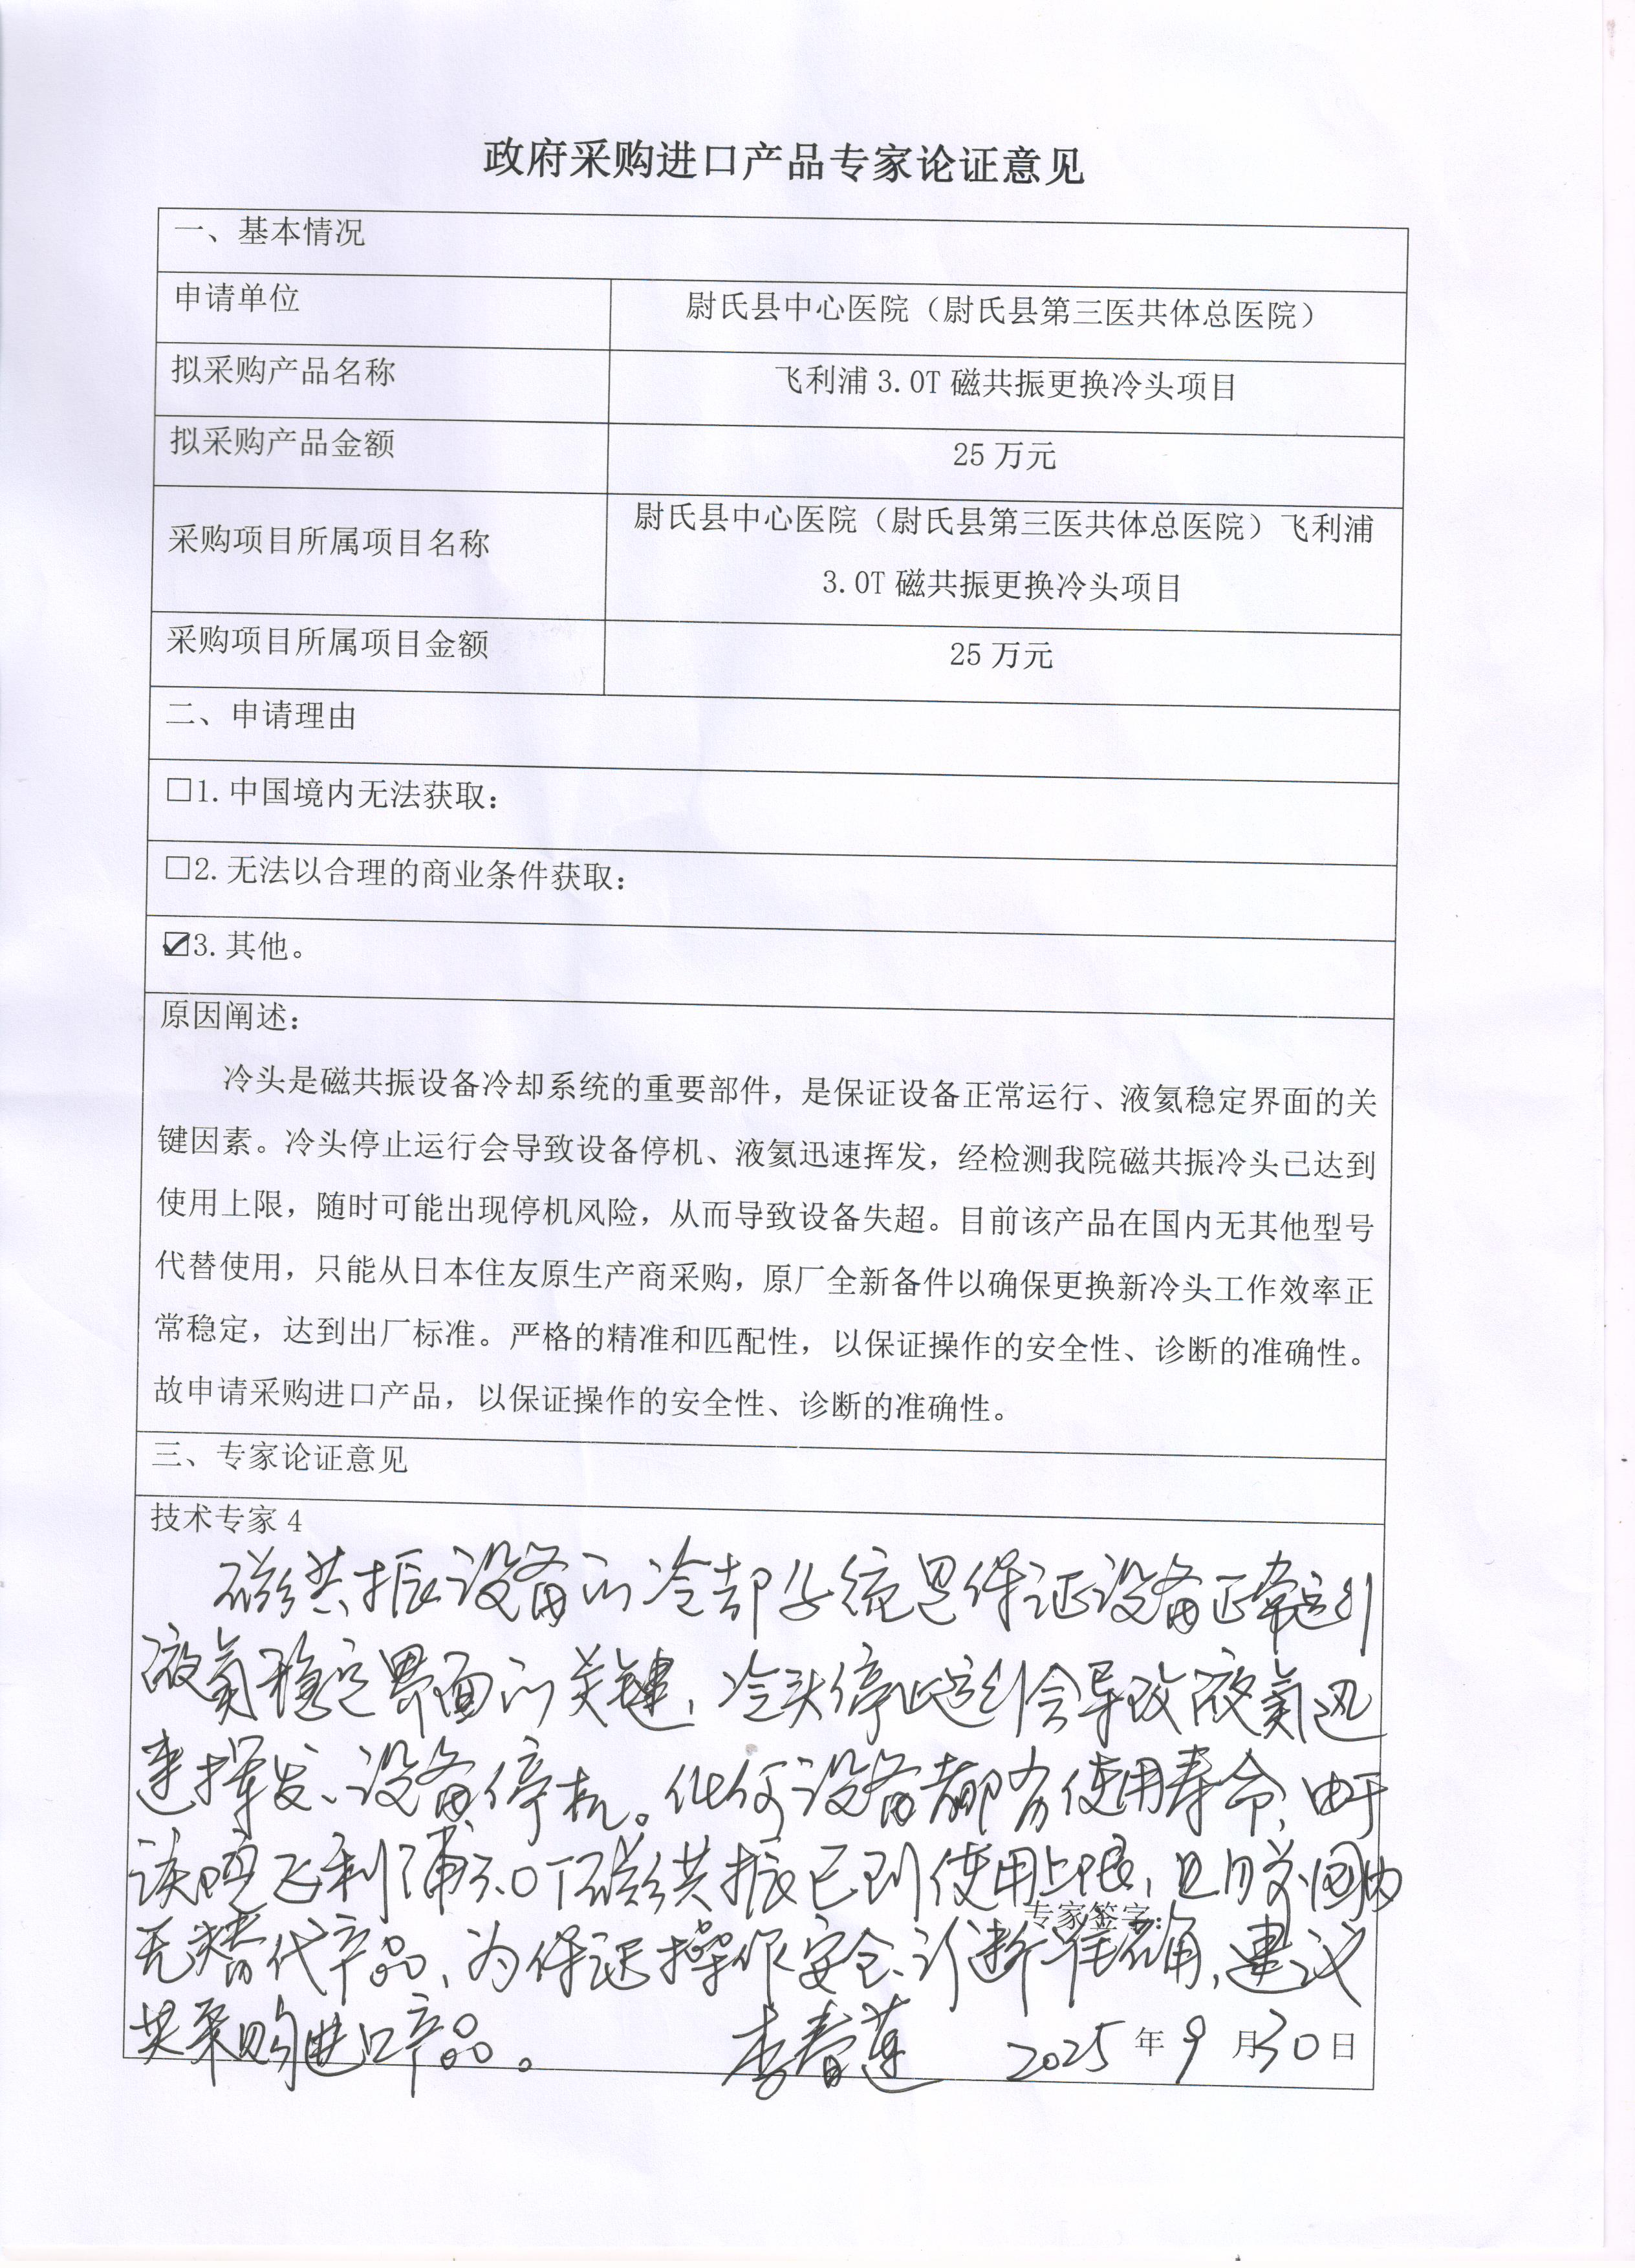 政府采购进口产品专家论证意见
一、基本情况
申请单位
尉氏县中心医院（尉氏县第三医共体总医院）
拟采购产品名称
飞利浦3.0T磁共振更换冷头项目
拟采购产品金额
25万元
采购项目所属项目名称
尉氏县中心医院（尉氏县第三医共体总医院）飞利浦
3.0T磁共振更换冷头项目
采购项目所属项目金额
25万元
二、申请理由
□1.中国境内无法获取：
□2.无法以合理的商业条件获取：
☑3.其他。
原因阐述：
冷头是磁共振设备冷却系统的重要部件，是保证设备正常运行、液氦稳定界面的关
键因素。冷头停止运行会导致设备停机、液氦迅速挥发，经检测我院磁共振冷头已达到
使用上限，随时可能出现停机风险，从而导致设备失超。目前该产品在国内无其他型号
代替使用，只能从日本住友原生产商采购，原厂全新备件以确保更换新冷头工作效率正
常稳定，达到出厂标准。严格的精准和匹配性，以保证操作的安全性、诊断的准确性。
故申请采购进口产品，以保证操作的安全性、诊断的准确性。
三、专家论证意见
技术专家4
磁共振设备的冷却系统是保证设备正常运行
液氦稳定界面的关键，冷头停止运行会导致液氦迅
速挥发、设备停机。任何设备都有使用寿命，由于
该院飞利浦3.0T磁共振已到使用上限，且目前国内
专家签字：
无替代产品，为保证操作安全、诊断准确，建议
其采购进口产品。
李春莲 2025年9月30日